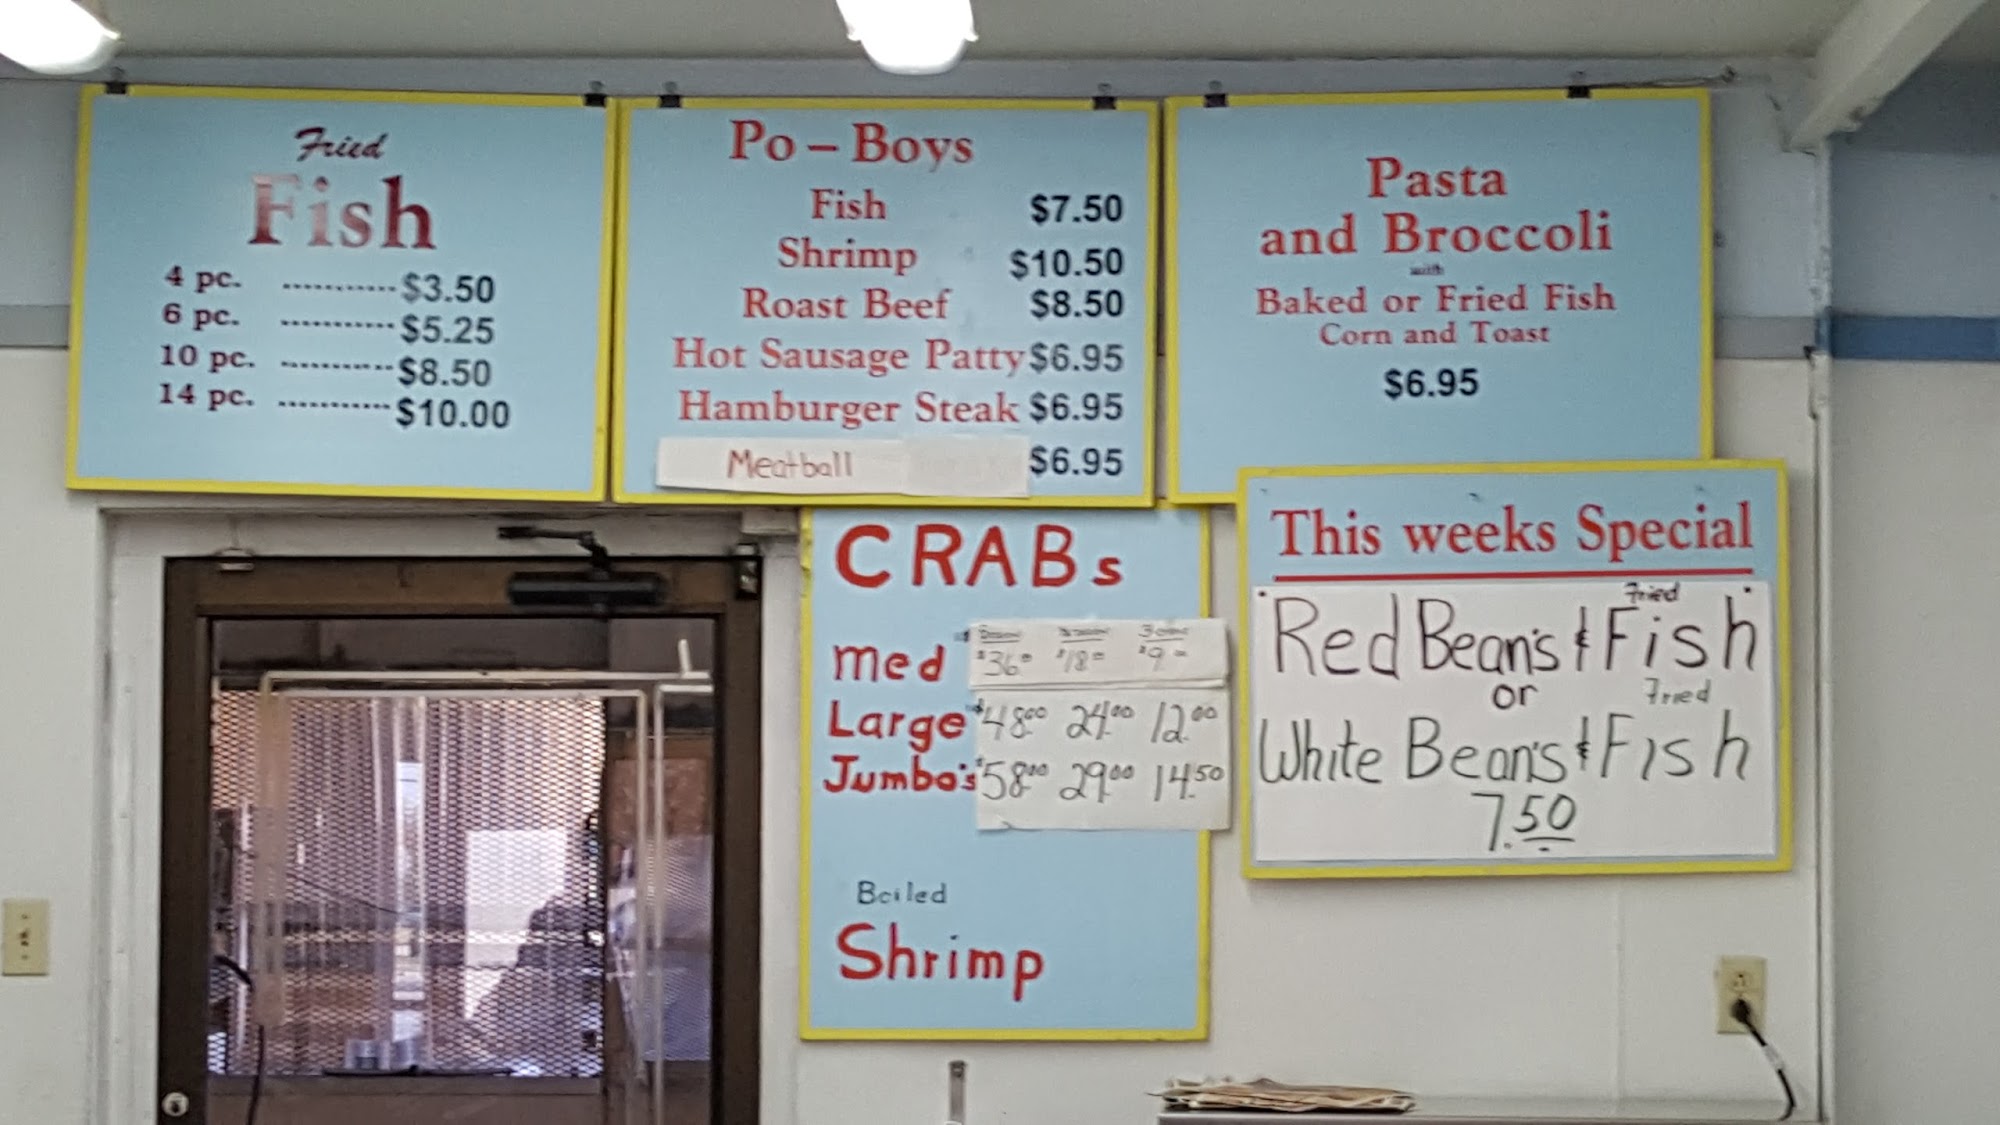 Fried
Fish
4 pc. ----------- $3.50
6 pc. ----------- $5.25
10 pc. ----------- $8.50
14 pc. ----------- $10.00
Po - Boys
Fish $7.50
Shrimp $10.50
Roast Beef $8.50
Hot Sausage Patty $6.95
Hamburger Steak $6.95
Meatball $6.95
Pasta
and Broccoli
with
Baked or Fried Fish
Corn and Toast
$6.95
CRABs
Med $36.00 $18.00 $9.00
Large $48.00 24.00 12.00
Jumbo's $58.00 29.00 14.50
Boiled
Shrimp
This weeks Special
Fried
Red Bean's & Fish
or
Fried
White Bean's & Fish
7.50